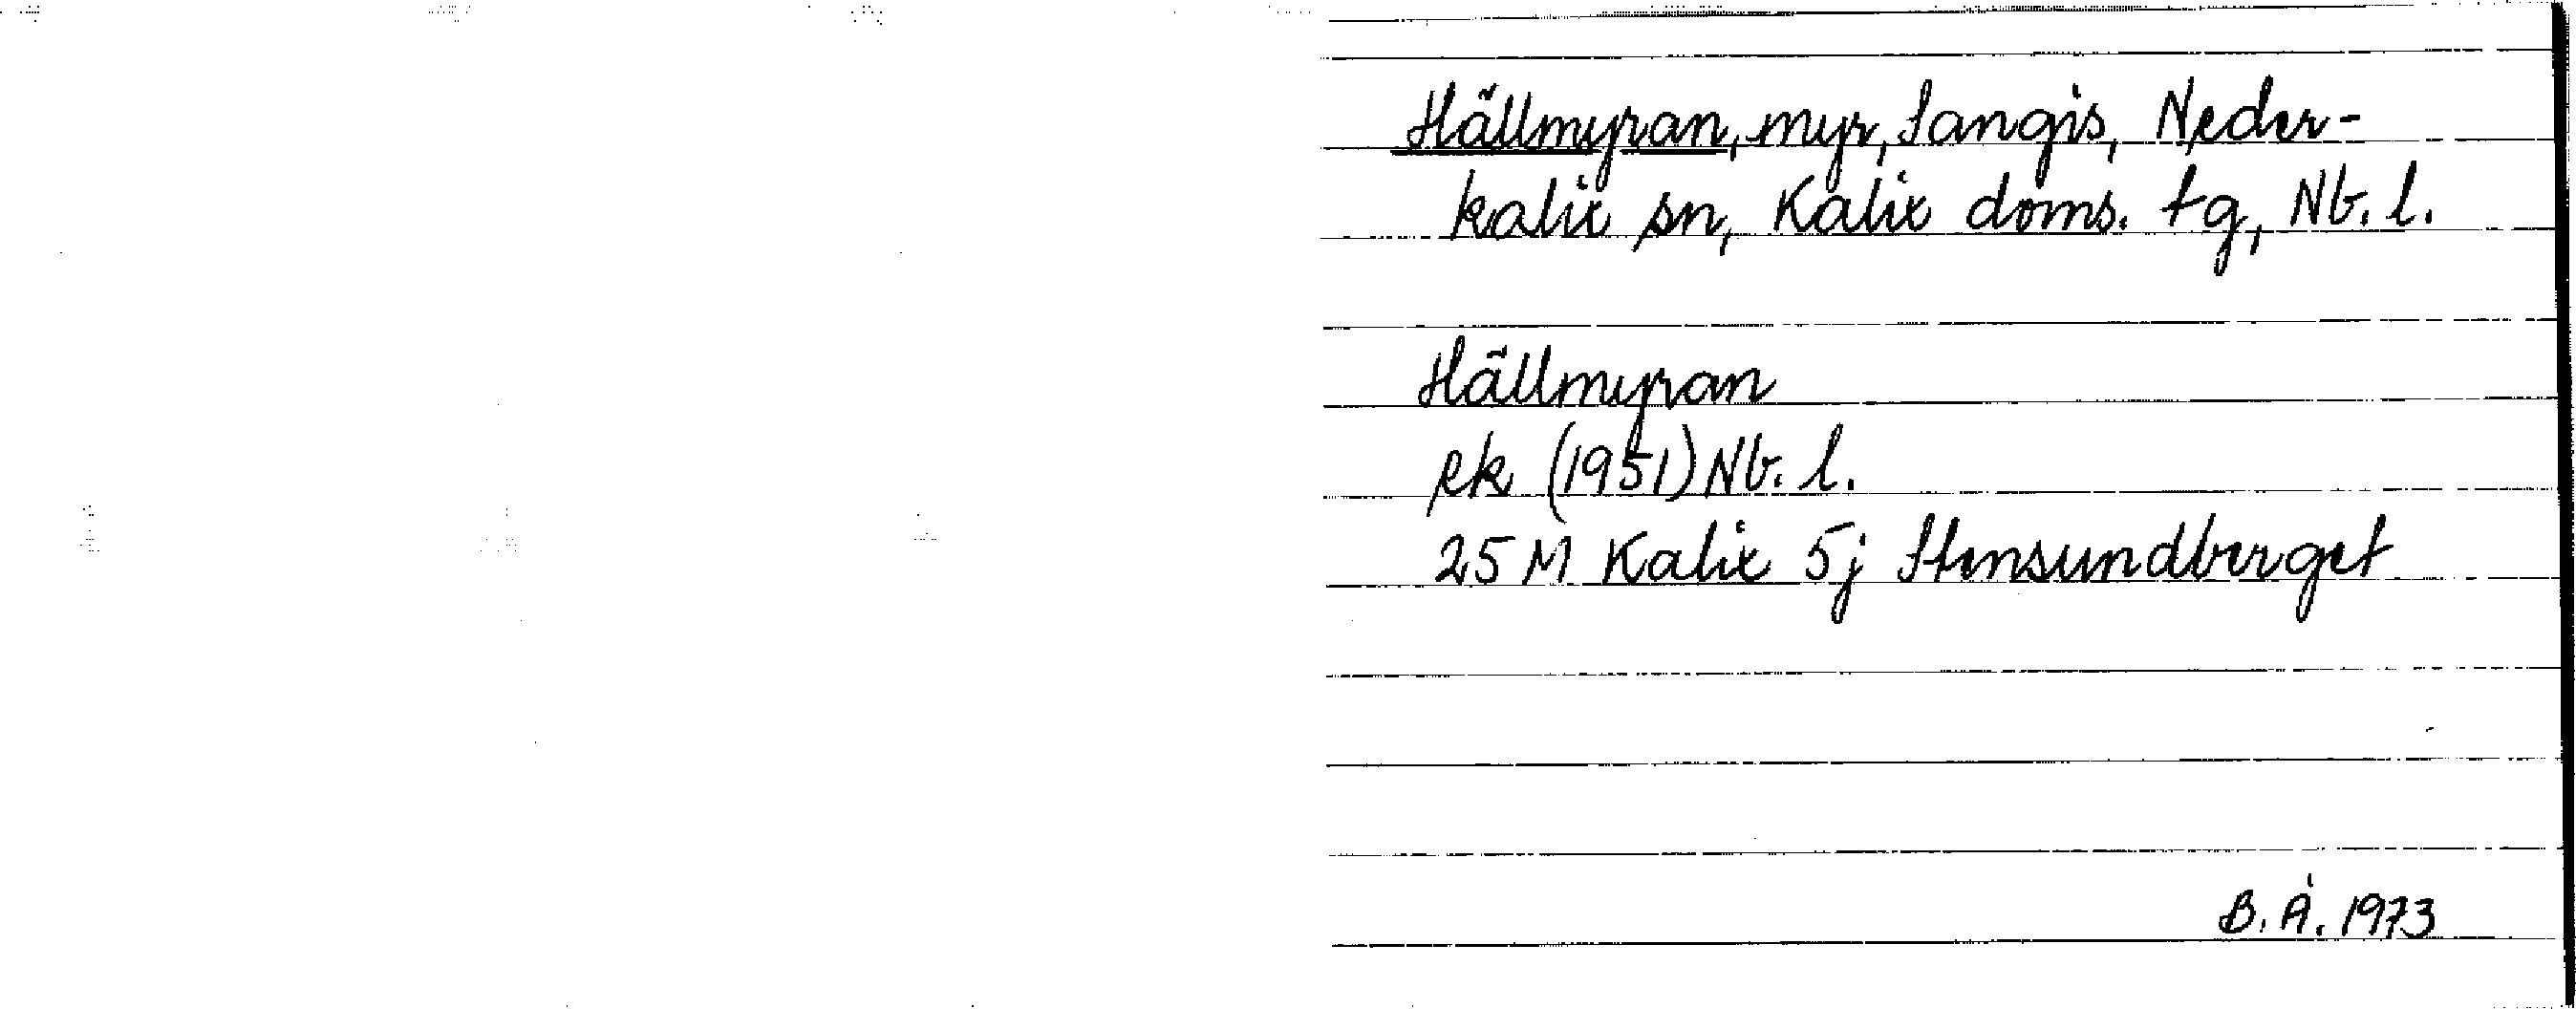 Hällmyran, myr, Sangis, Neder-
kalix sn, Kalix doms. tg, Nb. l.
Hällmyran
ek (1951) Nb. l.
25 M Kalix 5j Stensundberget
B. Å. 1973